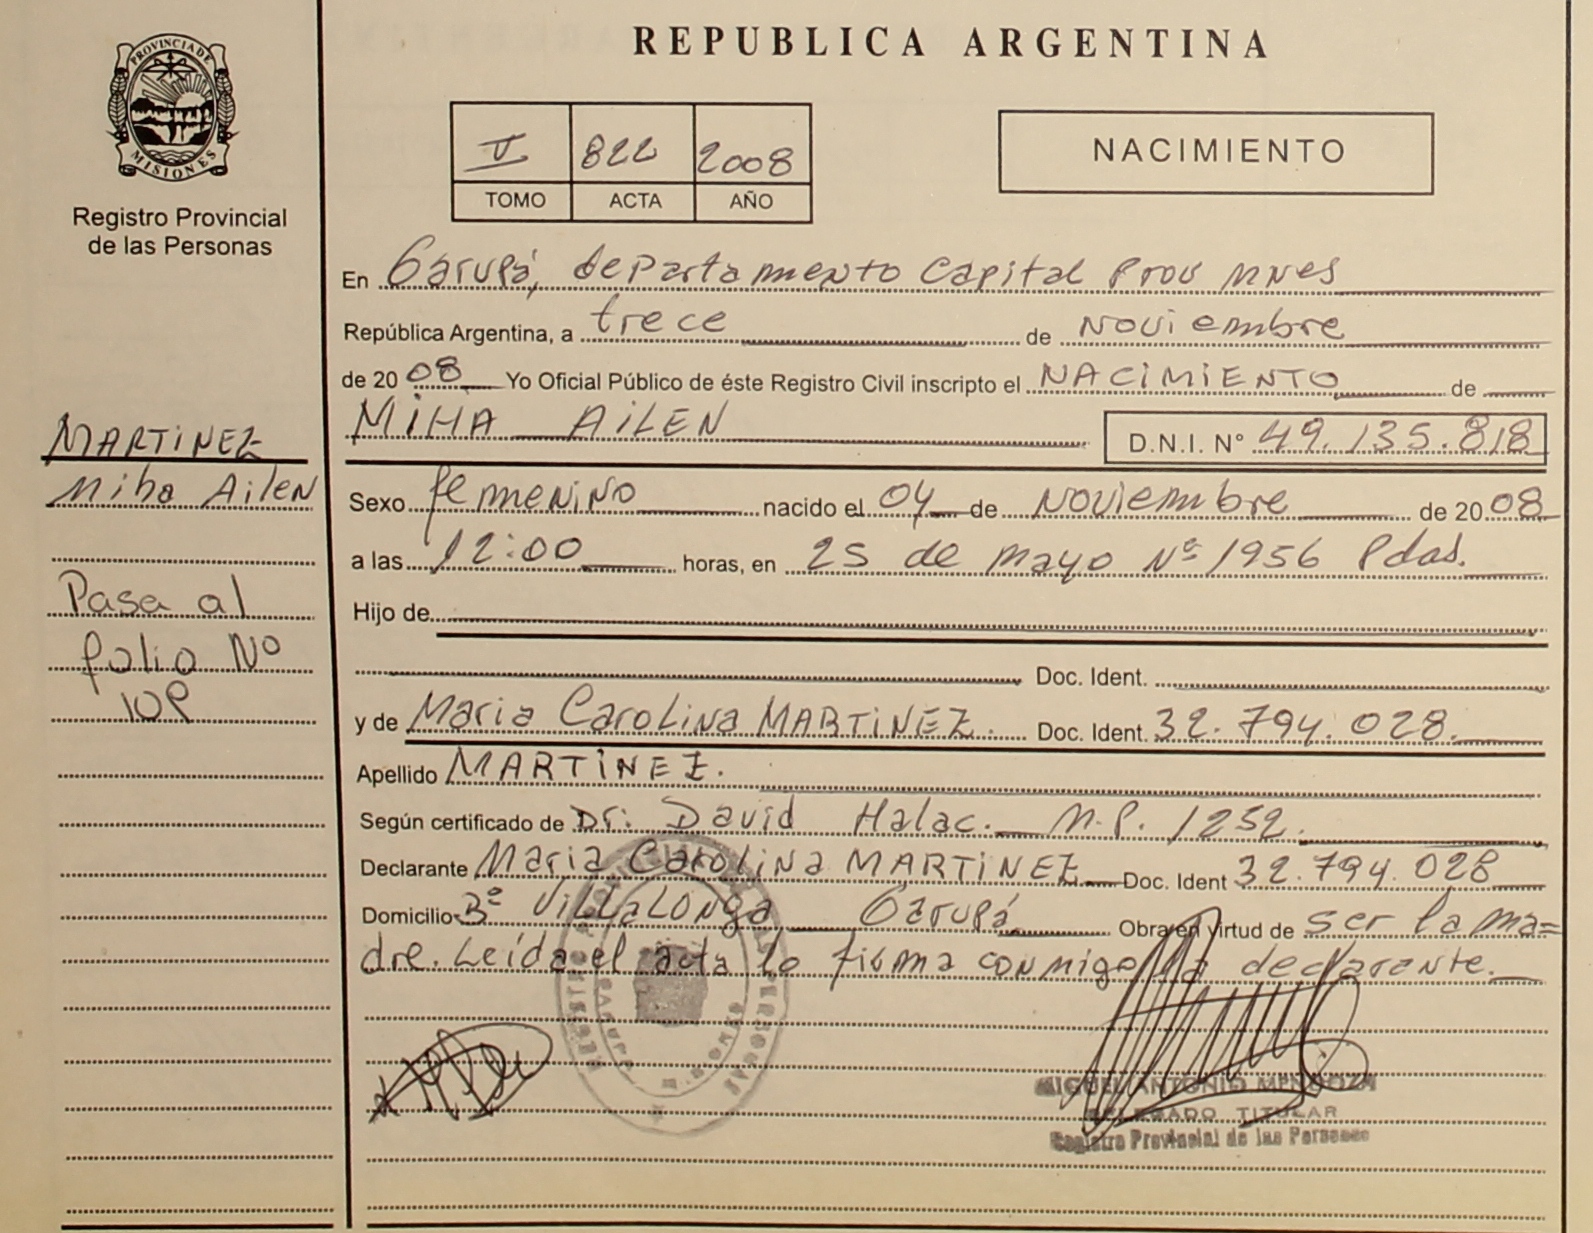 PROVINCIA DE
MISIONES
Registro Provincial
de las Personas
MARTINEZ
Miha Ailen
Pasa al
folio Nº
10P
REPUBLICA ARGENTINA
V 822 2008
TOMO ACTA AÑO
NACIMIENTO
En Garupá, departamento Capital Prov MNES
República Argentina, a trece de Noviembre
de 2008 Yo Oficial Público de éste Registro Civil inscripto el NACIMIENTO de
MIHA AILEN D.N.I. Nº 49.135.818
Sexo femenino nacido el 04 de Noviembre de 2008
a las 12:00 horas, en 25 de mayo Nº 1956 Pdas.
Hijo de
Doc. Ident.
y de Maria Carolina MARTINEZ. Doc. Ident. 32.794.028.
Apellido MARTINEZ.
Según certificado de Dr: David Halac. M.P. 1252.
Declarante Maria Carolina MARTINEZ Doc. Ident 32.794.028
Domicilio Bº Villalonga Garupá Obra en virtud de ser la ma=
dre. Leída el acta lo firma conmigo la declarante.
MIGUEL ANTONIO MENDOZA
DELEGADO TITULAR
Registro Provincial de las Personas